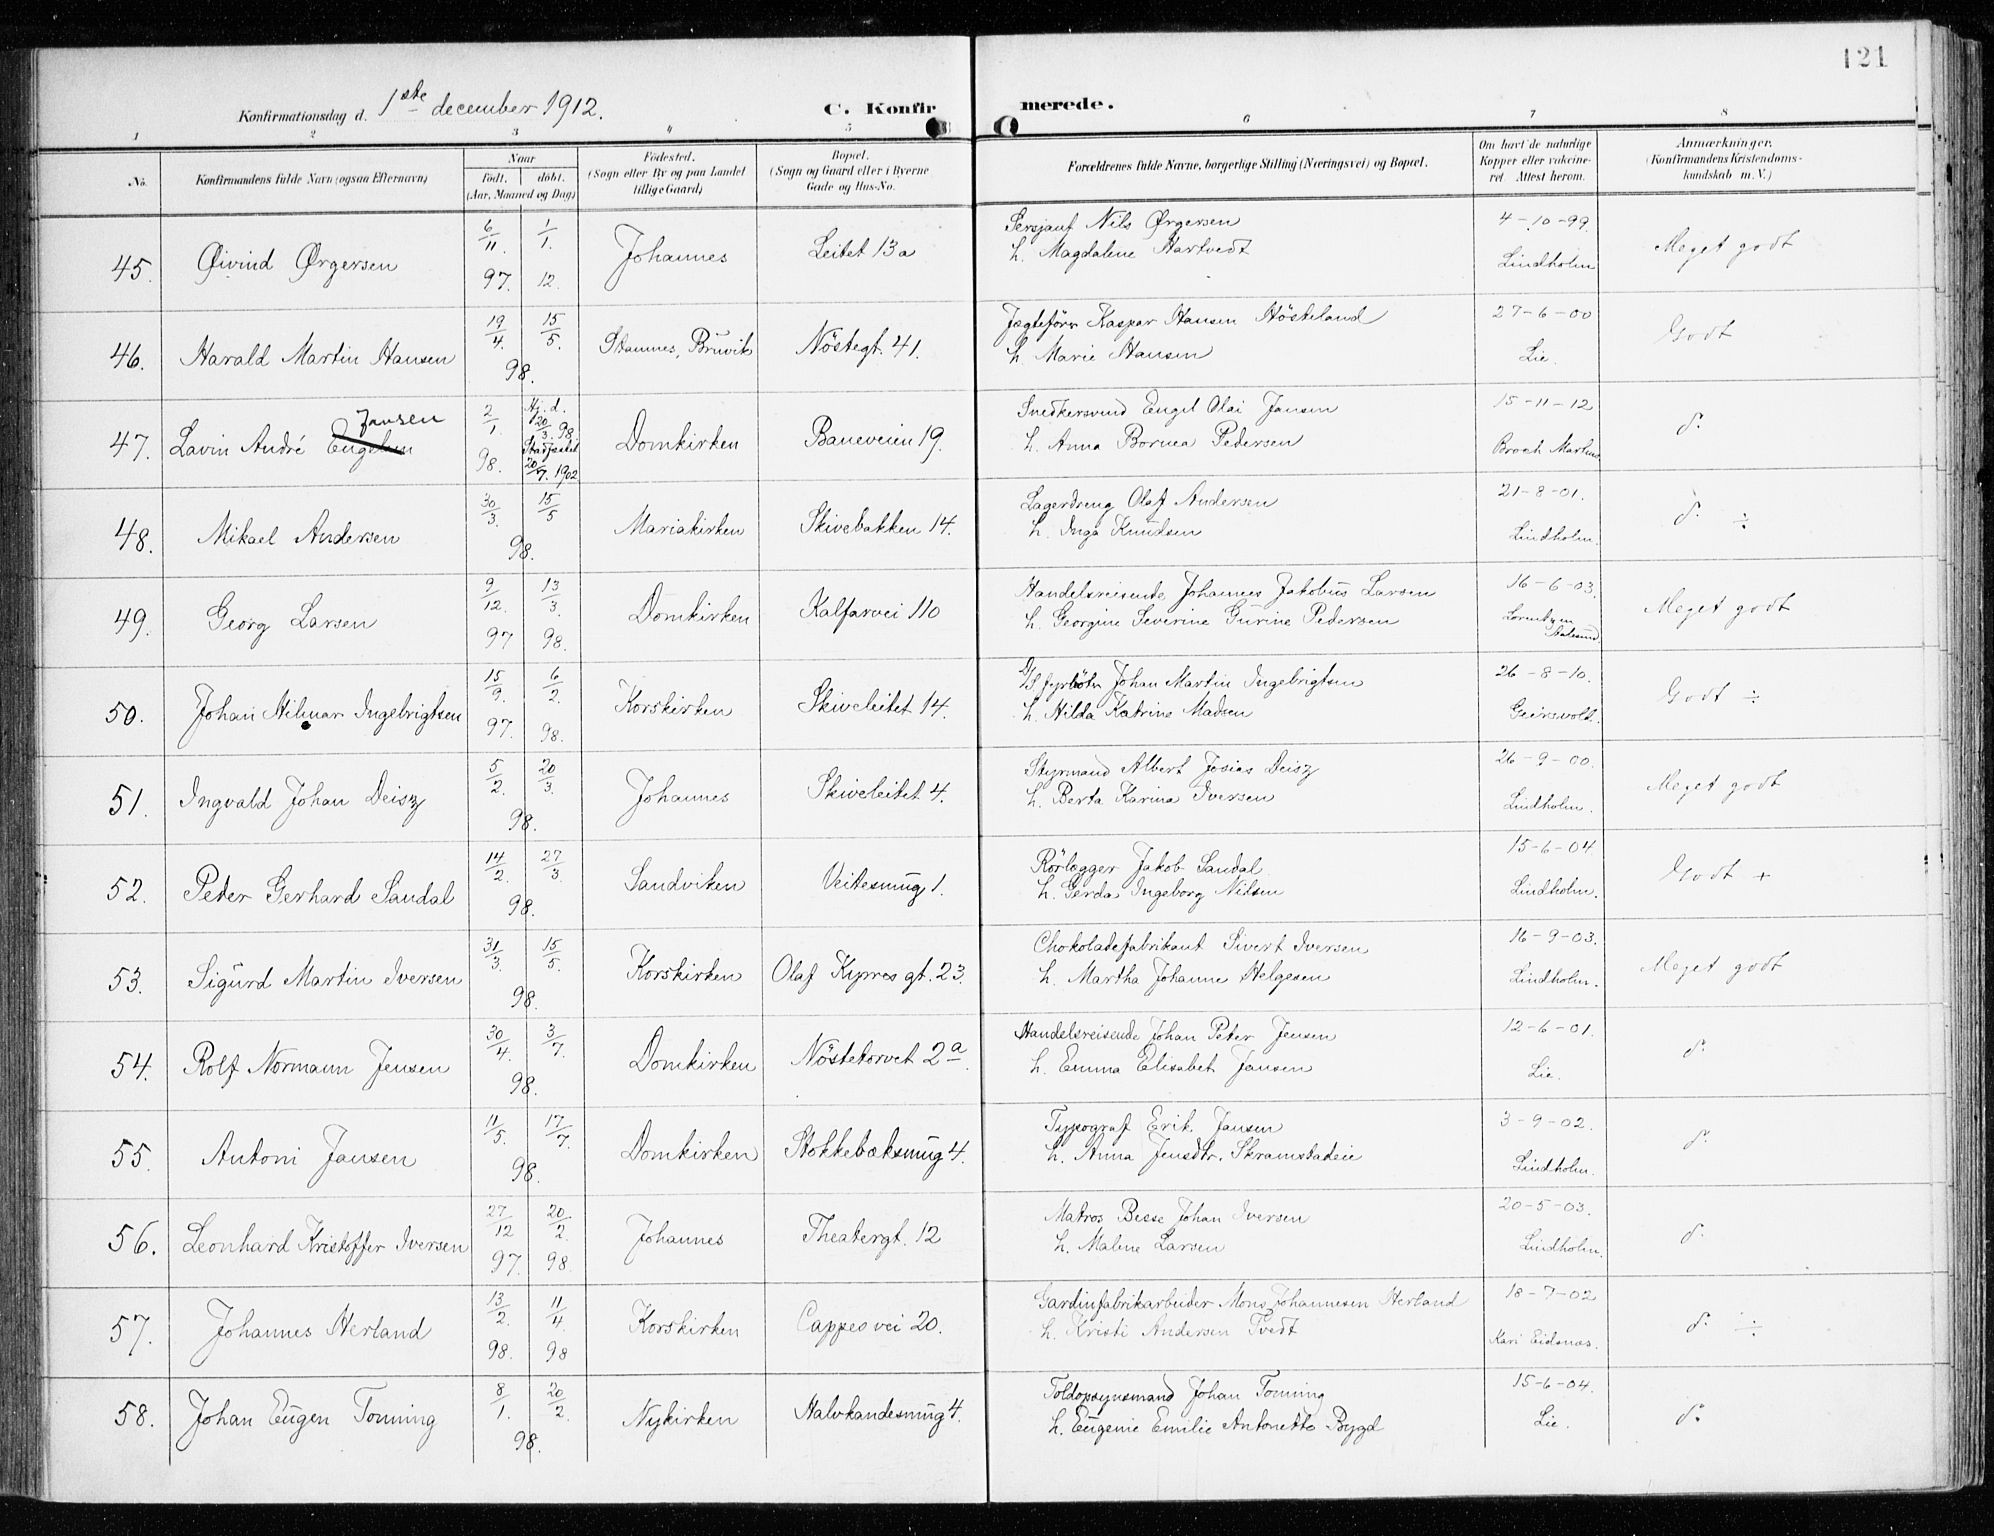 121
Konfirmationsdag d. 1ste december 1912.
C. Konfirmerede.
1 2 3 4 5 6 7 8
No.
Konfirmandens fulde Navn (ogsaa Efternavn)
Naar
født. døbt.
(Aar, Maaned og Dag)
Fødested.
(Sogn eller By og paa Landet
tillige Gaard)
Bopæl.
(Sogn og Gaard eller i Byerne
Gade og Hus-No.
Forældrenes fulde Navne, borgerlige Stilling (Næringsvei) og Bopæl.
Om havt de naturlige
Kopper eller vakcine-
ret. Attest herom.
Anmærkninger.
(Konfirmandens Kristendoms-
kundskab m. V.)
45. Øivind Ørgersen 6/11. 97. 1/1. 12. Johannes Leitet 13a
Sersjant Nils Ørgersen
h. Magdalene Hartvedt
4-10-99. Lindholm Meget godt
46. Harald Martin Hansen 19/4. 15/5. 98. Stamnes, Bruvik Nöstegt. 41.
Jægtefører Kaspar Hansen Hösteland
h. Marie Hansen
27-6-00 Lie. Godt
47. Lavin André Engelsen Jansen 2/1. 98. Hj. d. 20/3. 98 Stadfæstet 20/7. 1902 Domkirken Baneveien 19.
Snedkersvend Engel Olai Jansen
h. Anna Bornea Pedersen
15-11-12 Broch Martens d.
48. Mikael Andersen 30/3. 15/5 98. Mariakirken Skivebakken 14.
Lagerdreng Olaf Andersen
h. Inga Knudsen
21-8-01. Lindholm. d. ÷
49. Georg Larsen 9/12. 97 13/3. 98. Domkirken Kalfarvei 110
Handelsreisende Johannes Jakobus Larsen
h. Georgine Severine Gurine Pedersen
16-6-03. Lorentzen Meget godt
50. Johan Hilmar Ingebrigtsen 15/9. 97. 6/2. 98. Korskirken Skiveleitet 14.
D/S fyrbøter Johan Martin Ingebrigtsen
h. Hilda Katrine Madsen
26-8-10. Geirsvold. Godt ÷
51. Ingvald Johan Deisz 5/2. 20/3. 98. Johannes Skiveleitet 4.
Styrmand Albert Josias Deisz
h. Berta Karina Iversen
26-9-00. Lindholm. Meget godt
52. Peter Gerhard Sandal 14/2. 27/3. 98. Sandviken Veitesmug 1.
Rörlægger Jakob Sandal
h. Gerda Ingeborg Nilsen
15-6-04 Lindholm. Godt +
53. Sigurd Martin Iversen 31/3. 15/5. 98. Korskirken Olaf Kyrres gt. 23.
Chokoladefabrikant Sivert Iversen
h. Martha Johanne Helgesen
16-9-03. Lindholm. Meget godt
54. Rolf Normann Jensen 30/4. 3/7. 98. Domkirken Nöstetorvet 2a.
Handelsreisende Johan Peter Jensen
h. Emma Elisabet Jansen
12-6-01. Lie. d.
55. Antoni Jansen 11/5. 17/7. 98. Domkirken Stokkebæksmug 4.
Typograf Erik Jansen
h. Anna Jensdtr. Skramstadeie
3-9-02. Lindholm. d.
56. Leonhard Kristoffer Iversen 27/12 97. 20/2. 98 Johannes Theatergt. 12
Matros Besse Johan Iversen
h. Malene Larsen
20-5-03. Lindholm. d.
57. Johannes Herland 13/2. 98. 11/4. 98 Korskirken Cappesvei 20.
Gardinfabrikarbeider Mons Johannesen Herland
h. Kristi Andersen Tvedt
18-7-02 Kari Eidsnes. d. ÷
58. Johan Eugen Tonning 8/1. 20/2. 98. Nykirken Halvkandesmug 4.
Toldopsynsmand Johan Tonning
h. Eugenie Emilie Antonette Bygd
15-6-04. Lie. d.